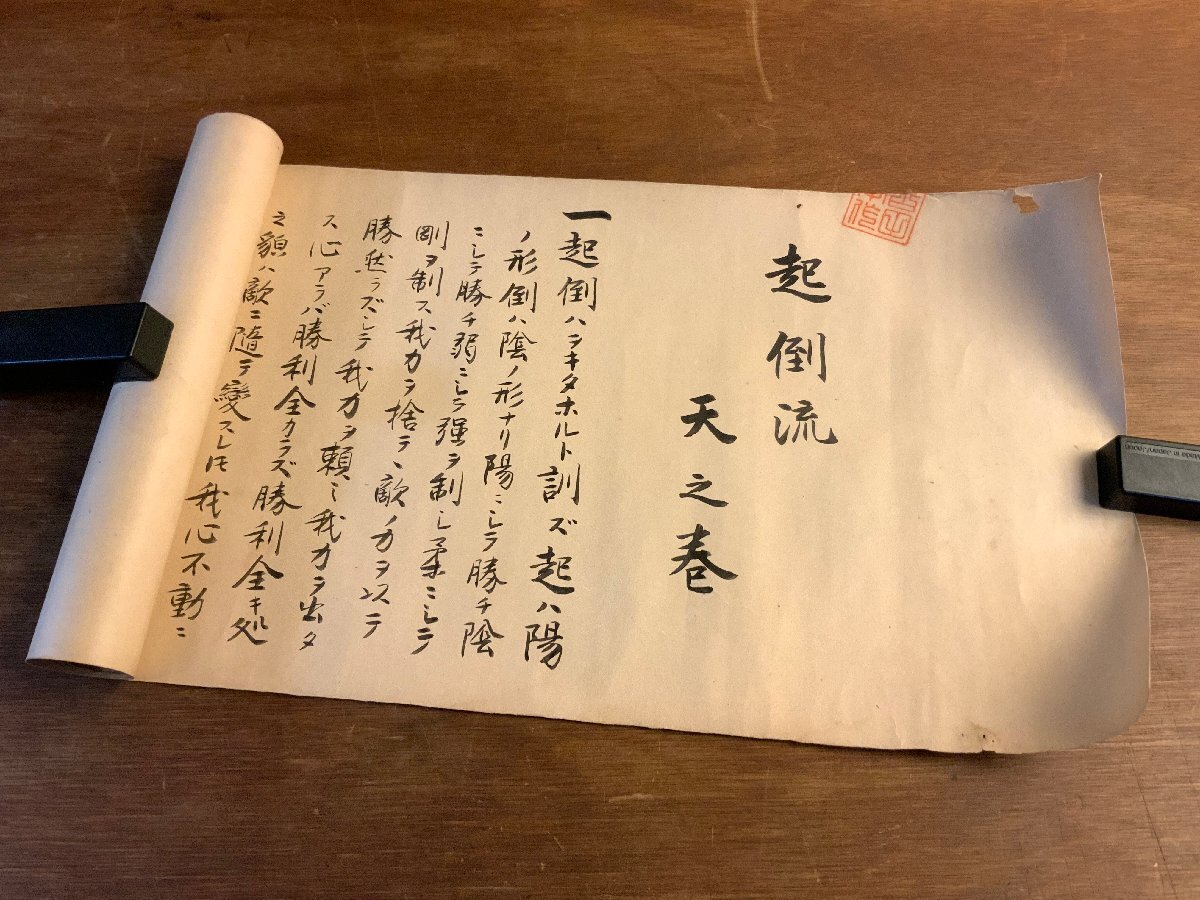 起倒流
天之巻
一起倒ハヲキタホルト訓ズ起ハ陽
ノ形倒ハ陰ノ形ナリ陽ニシテ勝チ陰
ニシテ勝チ弱ニシテ強ヲ制シ柔ニシテ
剛ヲ制ス我力ヲ捨テ、敵ノ力ヲ以テ
勝然ラズシテ我力ヲ頼ミ我力ヲ出サ
ス心アラバ勝利全カラズ勝利全キ処
之貌ハ敵ニ随テ変スレ𪜈我心不動ニ
Made in Japan